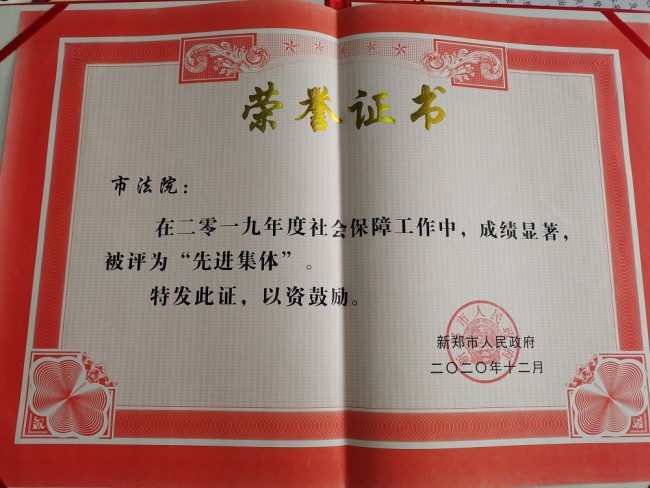 荣誉证书
市法院：
在二零一九年度社会保障工作中，成绩显著，
被评为“先进集体”。
特发此证，以资鼓励。
新郑市人民政府
二〇二〇年十二月